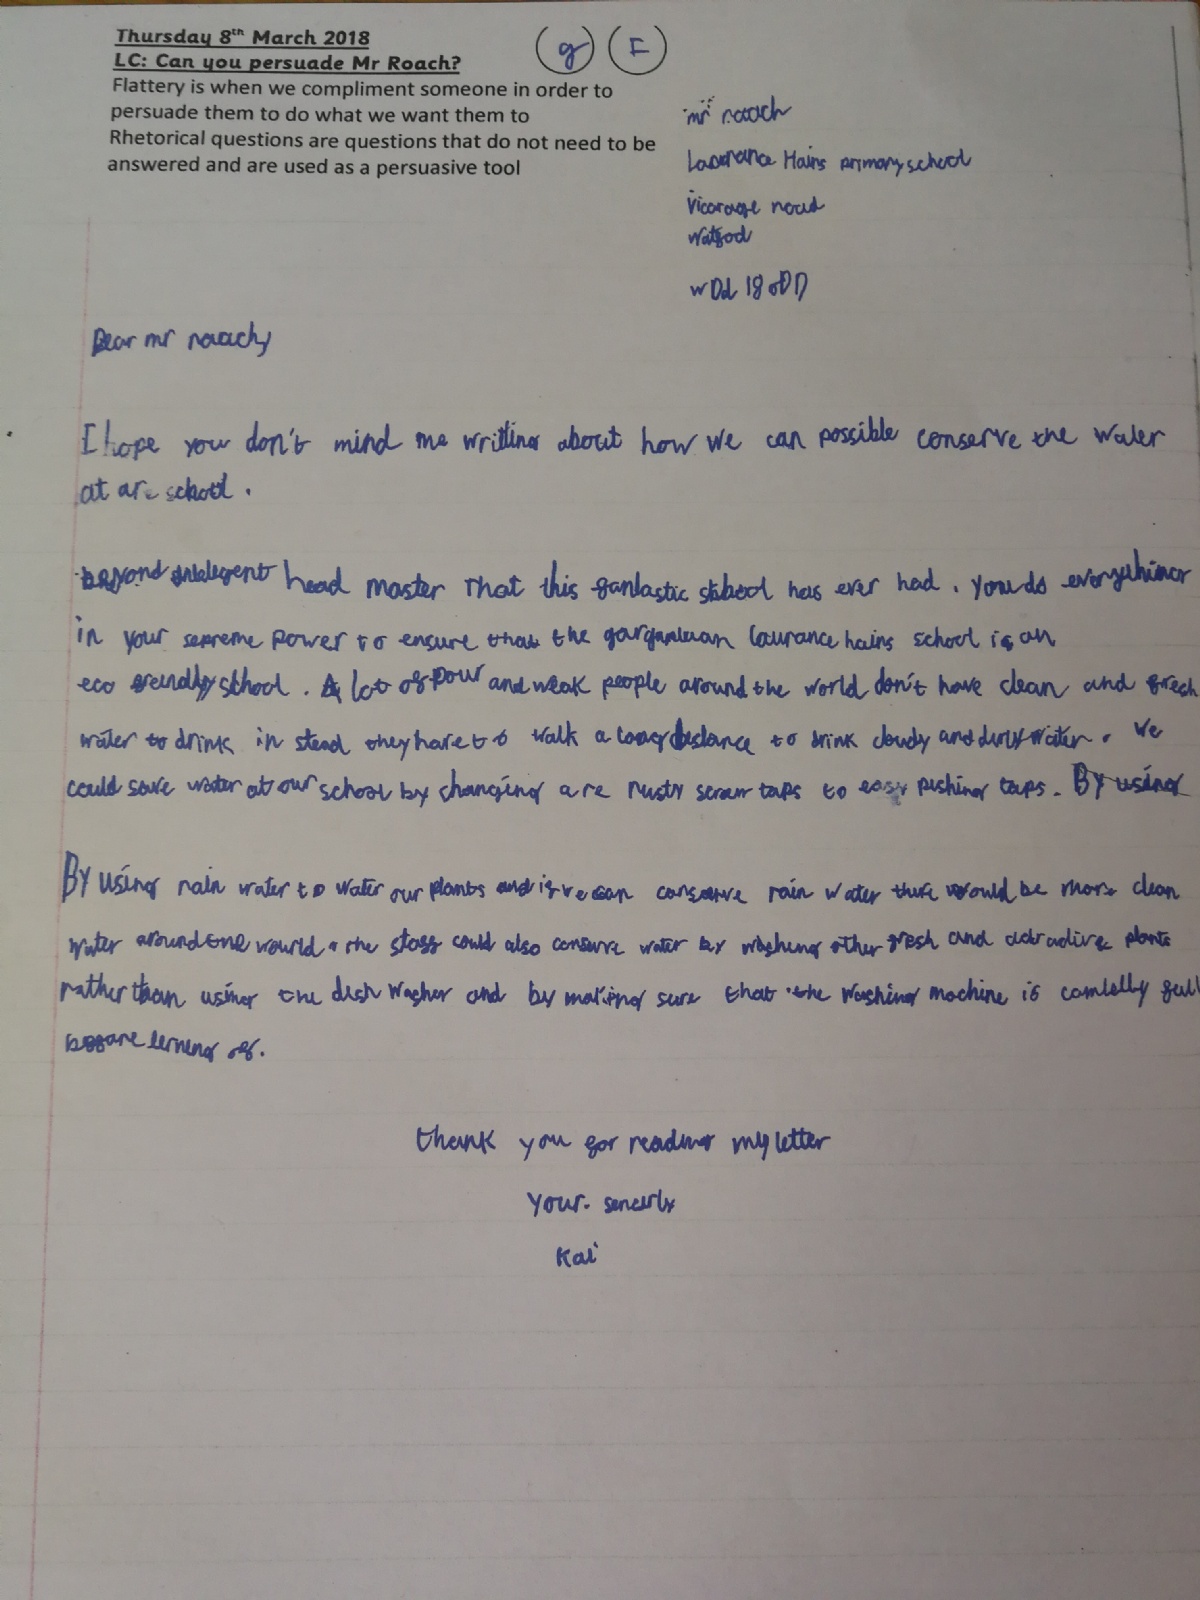 Thursday 8th March 2018
LC: Can you persuade Mr Roach?
Flattery is when we compliment someone in order to
persuade them to do what we want them to
Rhetorical questions are questions that do not need to be
answered and are used as a persuasive tool
g F
mr roach
Laurance Hains primary school
vicorage roud
Watfod
WD1 18 0DD
Dear mr roach,
I hope you don't mind me writting about how we can possible conserve the water
at are school.
beyond intelegent head master That this fantastic school has ever had. You do everything
in your sepreme power to ensure that the gargantuan laurance hains school is an
eco freindly school. A lot of pour and weak people around the world don't have clean and fresh
water to drink in stead they have to walk a long distance to drink cloudy and dirty water. We
could save water at our school by changing are rusty screw taps to easy pushing taps. By using
By using rain water to water our plants and if we can conserve rain water there would be more clean
water around the wourld. the staff could also conserve water by washing other fresh and adtradive plants
rather than using the dish washer and by making sure that the washing machine is comletly full
before terning of.
thank you for reading my letter
Your. sencerly
Kai